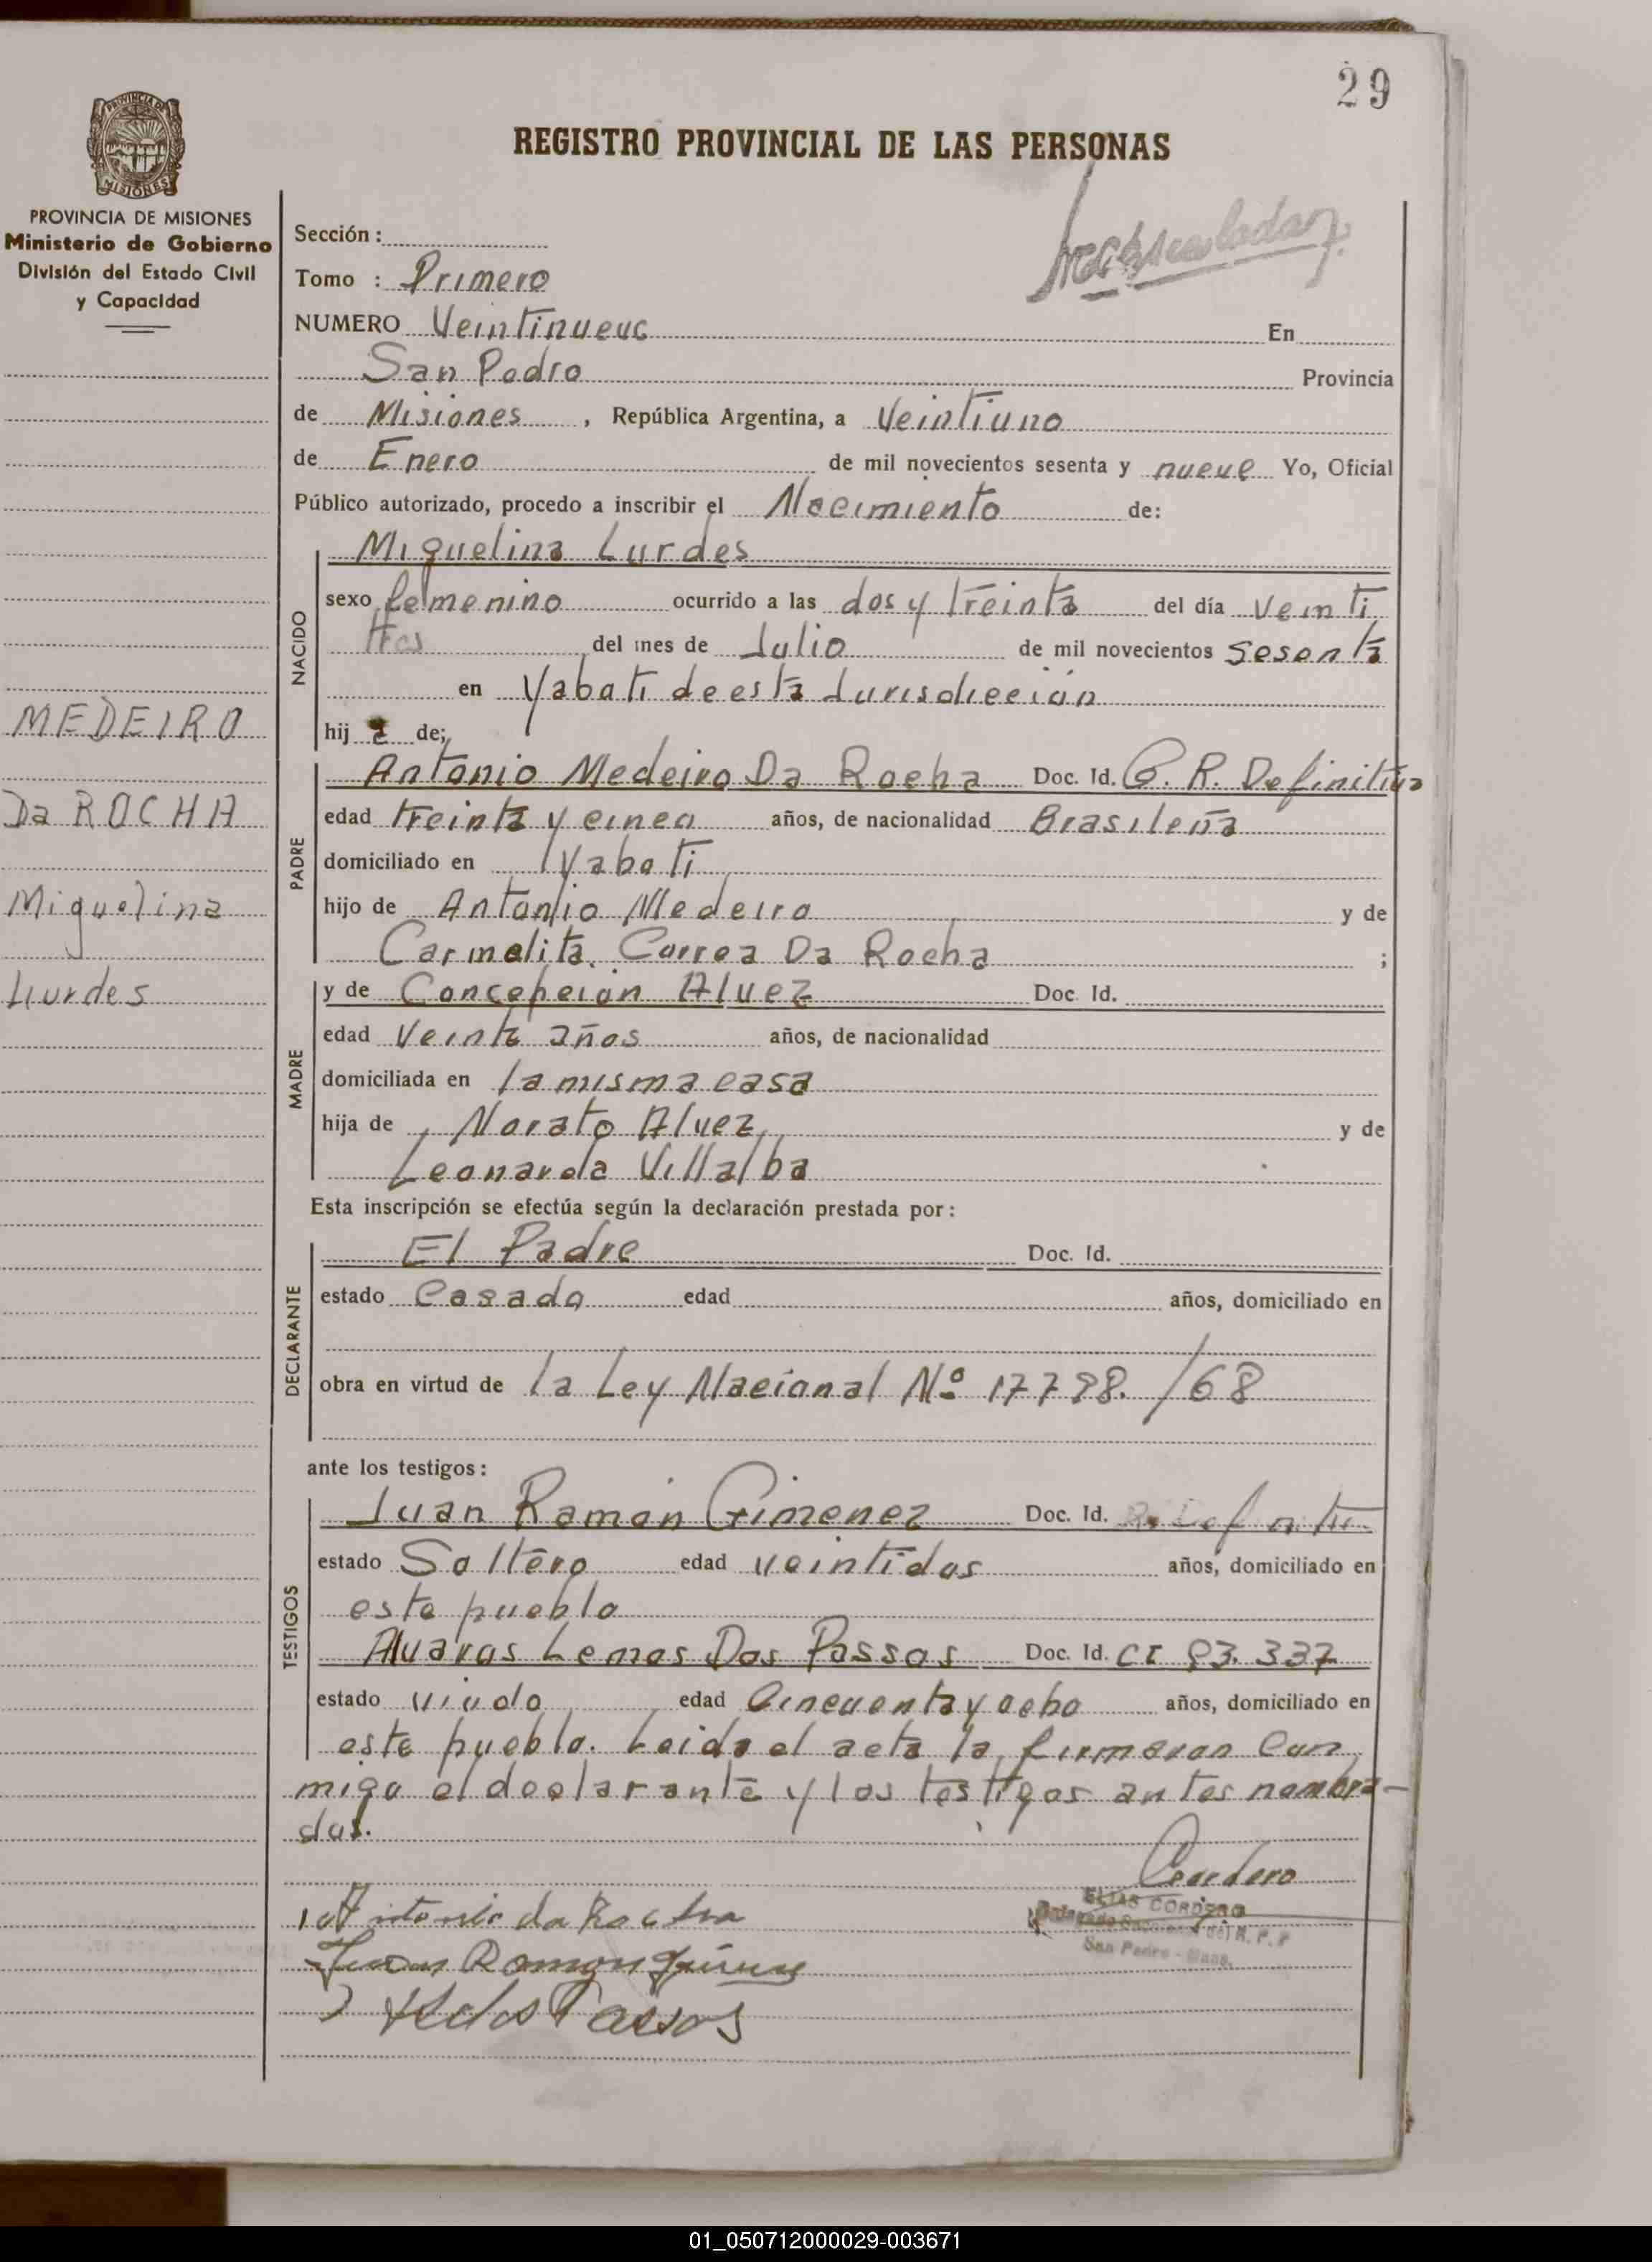 29
REGISTRO PROVINCIAL DE LAS PERSONAS
PROVINCIA DE MISIONES
Ministerio de Gobierno
División del Estado Civil
y Capacidad
Sección :
Tomo : Primero
NUMERO Veintinueve En
San Pedro Provincia
de Misiones , República Argentina, a Veintiuno
de Enero de mil novecientos sesenta y nueve Yo, Oficial
Público autorizado, procedo a inscribir el Nacimiento de:
NACIDO
Miguelina Lurdes
sexo femenino ocurrido a las dos y treinta del día veinti
tres del mes de Julio de mil novecientos sesenta
en Yabati de esta Jurisdiccion
hij a de;
MEDEIRO
Da ROCHA
Miguelina
Lurdes
PADRE
Antonio Medeiro Da Rocha Doc. Id. C. R. Definitiva
edad treinta y cinco años, de nacionalidad Brasileña
domiciliado en Yabati
hijo de Antonio Medeiro y de
Carmelita Correa Da Rocha ;
MADRE
y de Concepcion Alvez Doc. Id.
edad Veinte años años, de nacionalidad
domiciliada en la misma casa
hija de Norato Alvez y de
Leonarda Villalba
Esta inscripción se efectúa según la declaración prestada por :
DECLARANTE
El Padre Doc. Id.
estado Casado edad años, domiciliado en
obra en virtud de la Ley Nacional Nº 17798. /68
ante los testigos :
TESTIGOS
Juan Ramon Gimenez Doc. Id.
estado Soltero edad veintidos años, domiciliado en
este pueblo
Alvaros Lemos Dos Passos Doc. Id. CI 93.337
estado viudo edad Cincuenta y ocho años, domiciliado en
este pueblo. Leida el acta la firmaron con
migo el declarante y los testigos antes nombra-
dos.
Cordero
ELIAS CORDERO
del R. P. P
San Pedro - Mnes.
Antonio da Rocha
Juan Ramon Gimenez
dos Passos
01_050712000029-003671